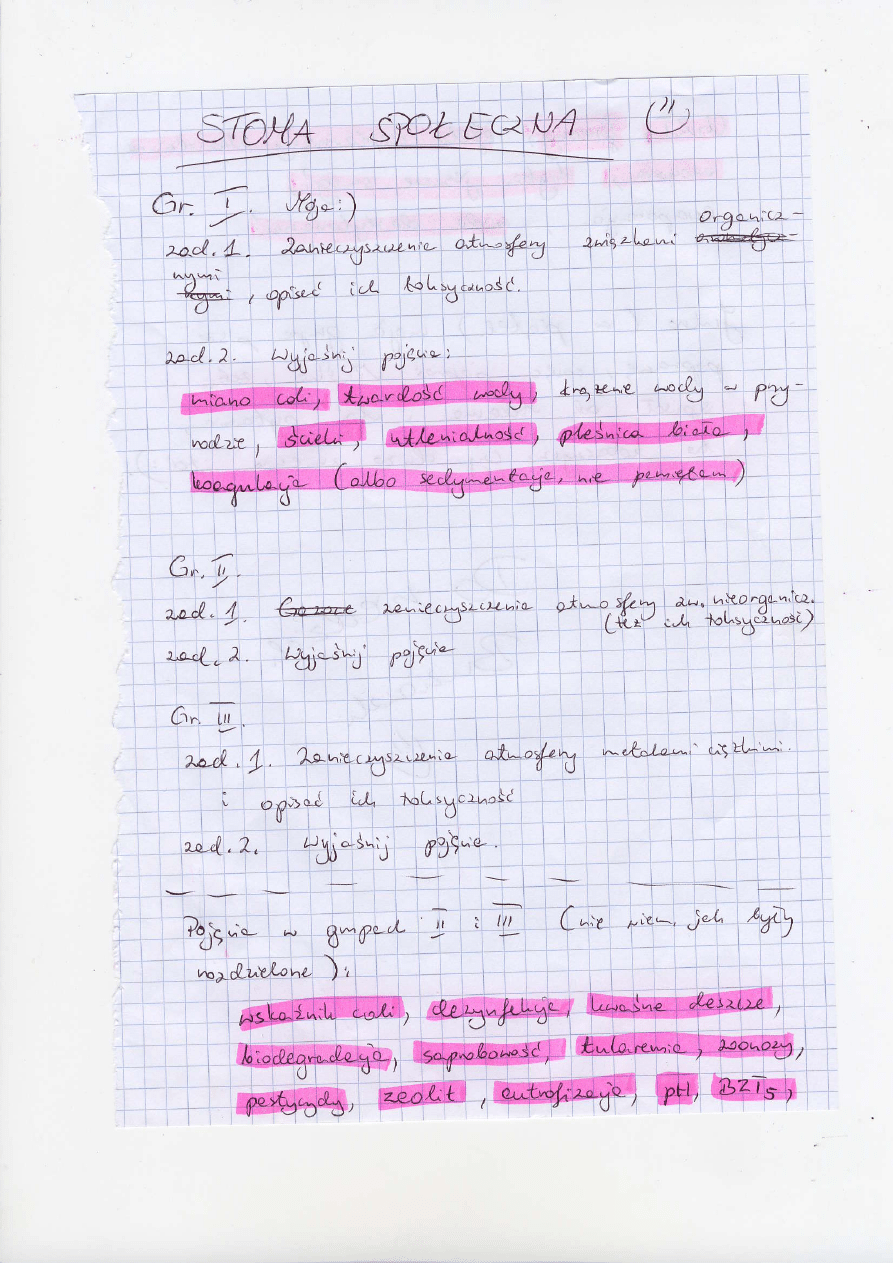 STOMA SPOŁECZNA
Gr. I. Moje:)
zad. 1. Zanieczyszczenie atmosfery związkami organicz-
nymi, opisać ich toksyczność.
zad. 2. Wyjaśnij pojęcie:
miano coli, twardość wody, krążenie wody w przy-
rodzie, ścieki, utlenialność, pleśnica biała,
koagulacja (albo sedymentacja, nie pamiętam)
Gr. II.
zad. 1. zanieczyszczenia atmosfery zw. nieorganicz.
(też ich toksyczność)
zad. 2. Wyjaśnij pojęcia
Gr. III.
zad. 1. Zanieczyszczenia atmosfery metalami ciężkimi.
i opisać ich toksyczność
zad. 2. Wyjaśnij pojęcie.
Pojęcia w grupach II i III (nie wiem, jak były
rozdzielone):
wskaźnik coli, dezynfekcja, kwaśne deszcze,
biodegradacja, saprobowość, tularemia, zoonozy,
pestycydy, zeolit, eutrofizacja, pH, BZT5,